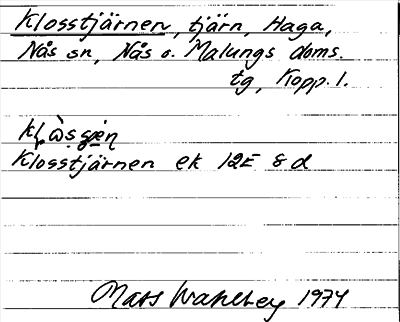 Klosstjärnen, tjärn, Haga,
Nås sn, Nås o. Malungs doms.
tg, Kopp. l.
Klosstjärnen ek 12E 8d
Mats Wahlberg 1974